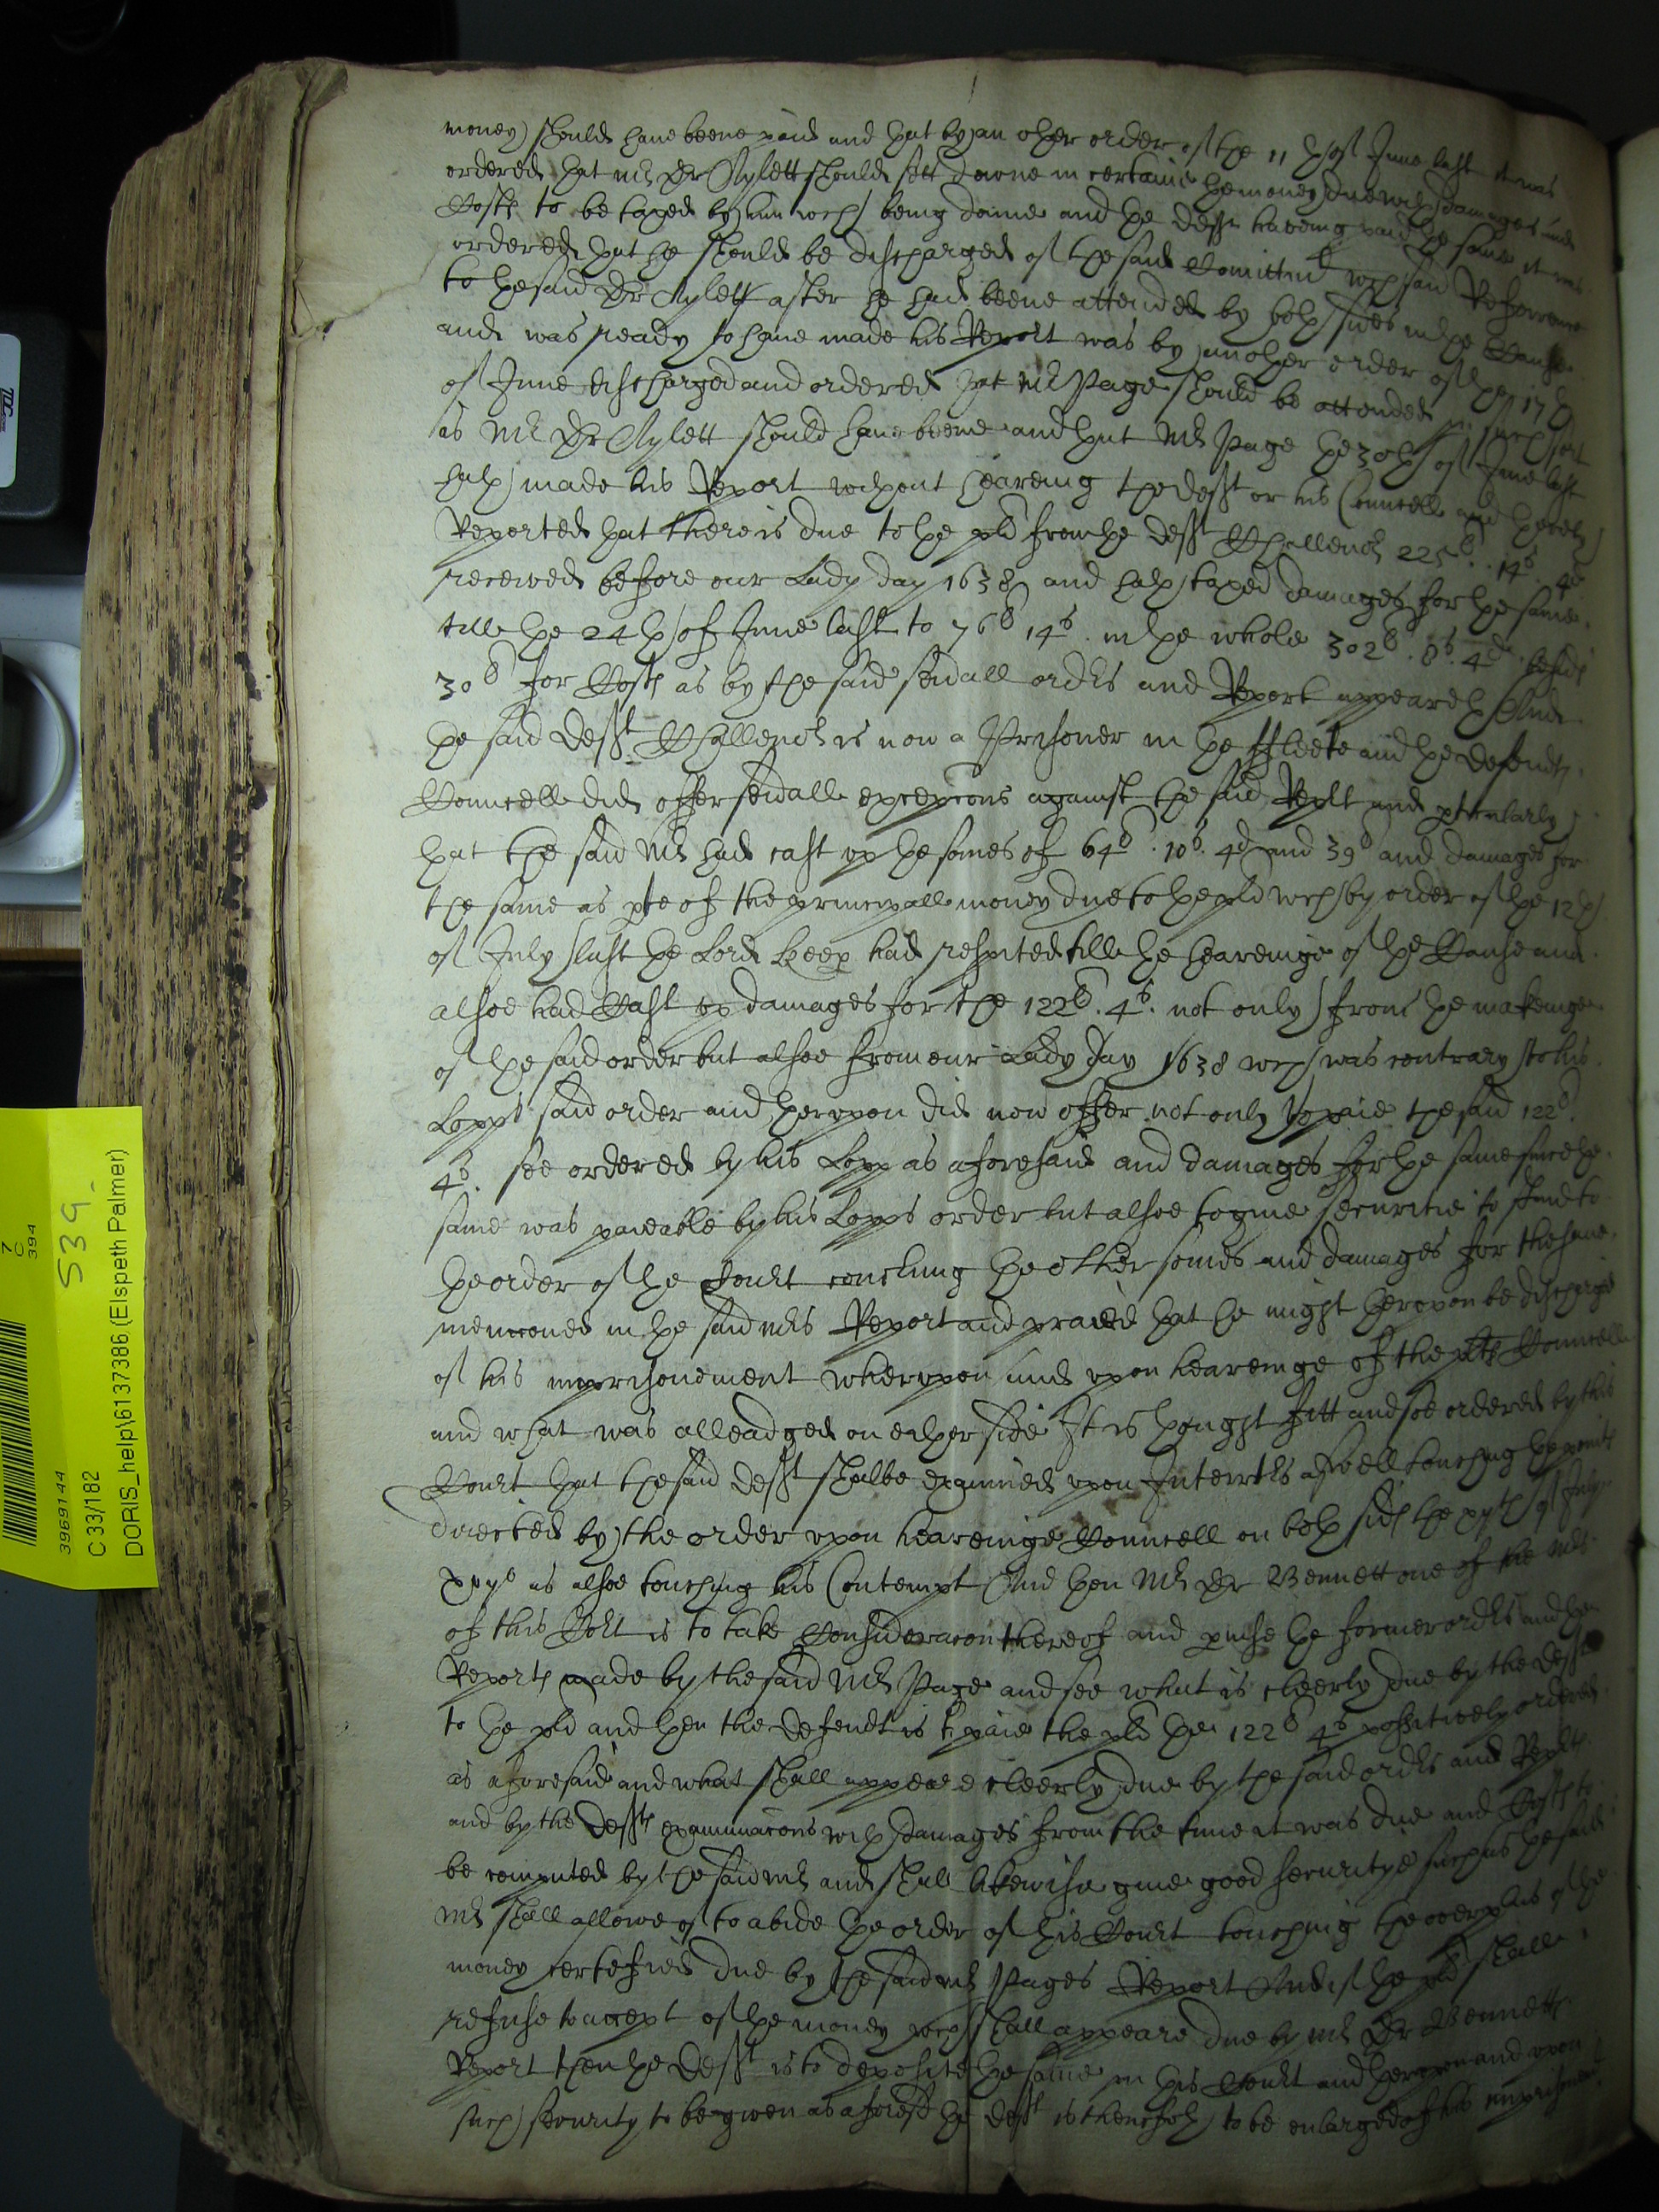 money) should have beene paid and that by an other order of the 11th of June last it was
ordered that Mr Dr Aylett should sett downe in certaine the money due with damages and
Costs to be taxed by him wch being donne and the deft haveing paid the same it was
ordered that he should be discharged of the said Comittmt wch said Referrence
to the said Dr Aylett after he had beene attended by both sides in the Cause
and was ready to have made his Report was by another order of the 17th
of June discharged and ordered that Mr Page should be attended in such sort
as Mr Dr Aylett should have beene and that Mr Page the 30th of June last
hath made his Report without heareing the deft or his Councell and therby
Reported that there is due to the plt from the deft 225li. 14s. 4d
received before our Lady day 1638 and hath taxed damages for the same
till the 24th of June last to 76li 14s. in the whole 302li. 8s. 4d. besides
30li for Costs as by the said severall ordrs and Report appeareth And
the said deft is now a Prisoner in the ffleete and the defendts
Councell did offer severall excepcons against the said Report and pticularly
that the said Mr had cast up the somes of 64li. 10s. 4d and 39li and damages for
the same as pte of the principall money due to the plt wch by order of the 12th
of July last the Lord Keep had respited till the heareinge of the Cause and
alsoe had Cast up damages for the 122li. 4s. not only from the makeinge
of the said order but alsoe from our Lady day 1638 wch was contrary to his
Lopps said order and therupon did now offer not only to paie the said 122li.
4s. soe ordered by his Lopp as aforesaid and damages for the same since the
same was paieable by his Lopps order but alsoe to give securitie to stand to
the order of the Court touching the other somes and damages for the same
mencioned in the said Mrs Report and praied that he might therupon be discharged
of his imprisonement wherupon and upon heareinge of the plts Councell
and what was alleadged on either side It is thought fitt and soe ordered by this
Court that the said deft shalbe examined upon Interrs aswell touching the points
directed by the order upon heareinge Councell on both sides the of July
as alsoe touching his Contempt And then Mr Dr Bennett one of the Mrs
of this Cort is to take Consideracon thereof and peruse the former ordrs and the
Reports made by the said Mr Page and see what is cleerly due by the deft
to the plt and then the defendt is to paie the plt the 122li 4s possitively ordered
as aforesaid and what shall appeare cleerly due by the said ordrs and Reports
and by the defts examinacons with damages from the time it was due and Costs to
be computed by the said Mr and shall likewise give good securitye such as the said
Mr shall allowe of to abide the order of this Court touching the overplus of the
money certefied due by the said Mr Pages Report And if the plt shall
refuse to accept of the money wch shall appeare due by Mr Dr Bennetts
Report then the deft is to deposite the same in this Court and therupon and upon
such security to be given as aforesd the deft is thenceforth to be enlarged of his imprisonemt
7
C
394
3969144
539
C 33/182
DORIS_help\6137386 (Elspeth Palmer)